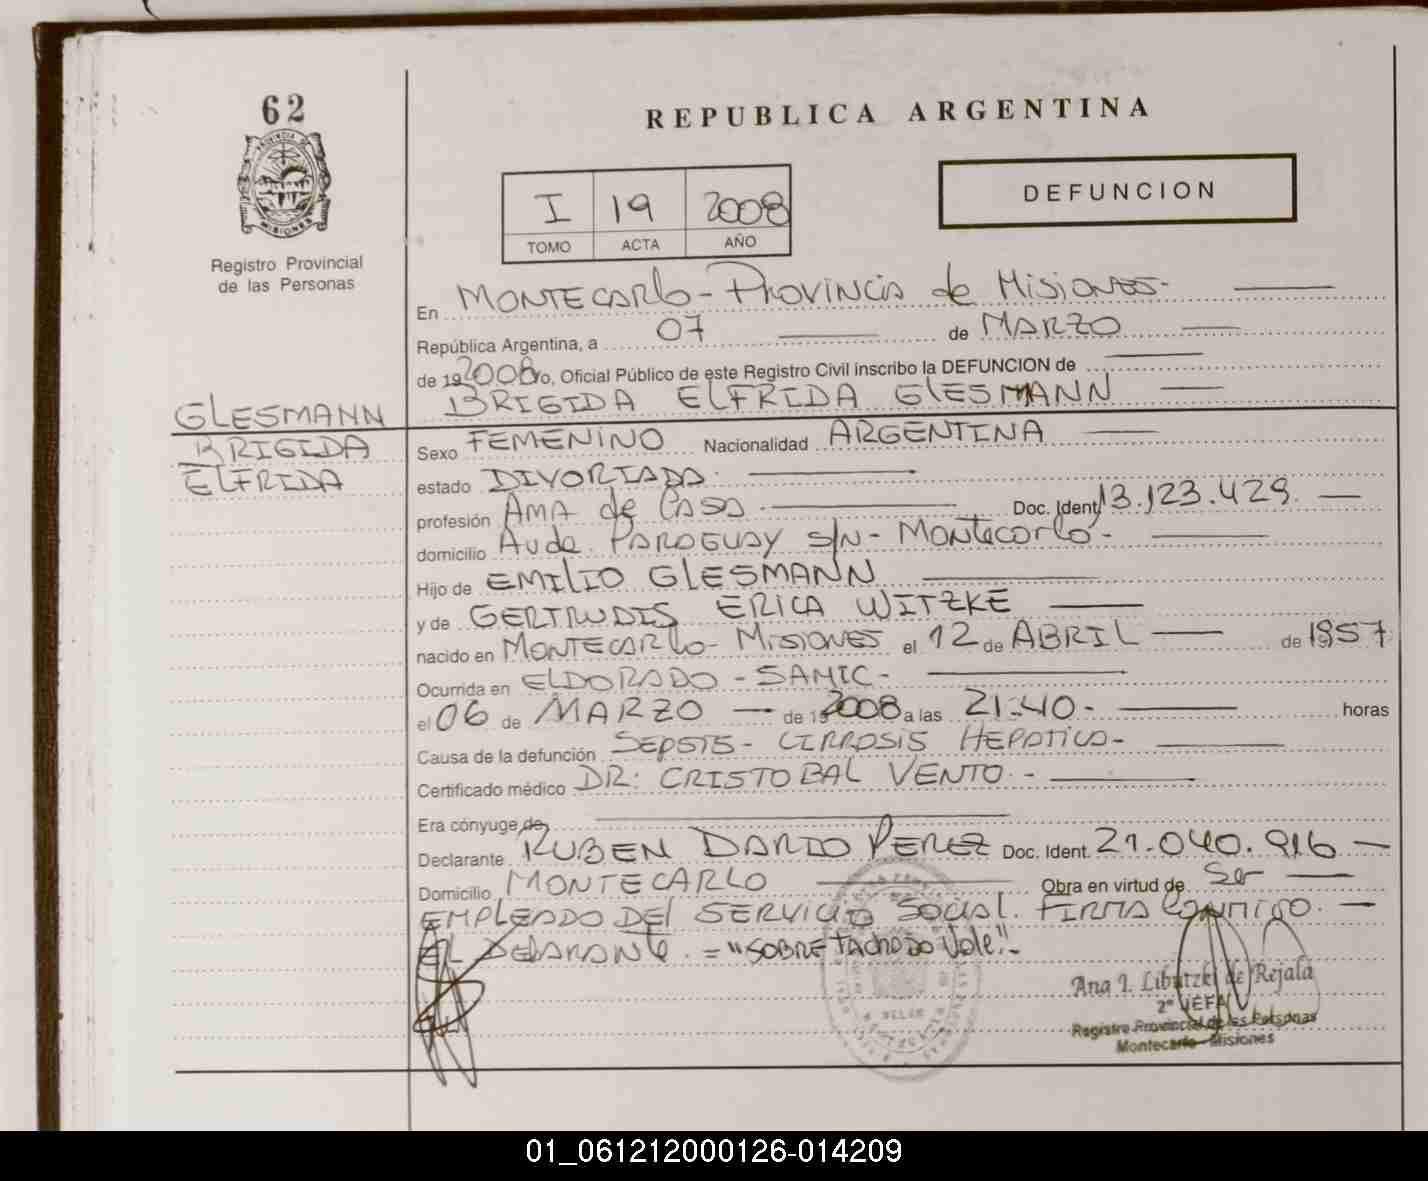 62
REPUBLICA ARGENTINA
I 19 2008
TOMO ACTA AÑO
DEFUNCION
PROVINCIA
MISIONES
Registro Provincial
de las Personas
En MONTECARLO - PROVINCIA de MISIONES-
República Argentina, a 07 de MARZO
de 192008 yo, Oficial Público de este Registro Civil inscribo la DEFUNCION de
BRIGIDA ELFRIDA GLESMANN
GLESMANN
BRIGIDA
ELFRIDA
Sexo FEMENINO Nacionalidad ARGENTINA
estado DIVORCIADA.
profesión AMA de CASA. Doc. Ident. 13.123.429.
domicilio Avda. PARAGUAY S/N - Montecarlo-
Hijo de EMILIO GLESMANN
y de GERTRUDIS ERICA WITZKE
nacido en MONTECARLO- MISIONES el 12 de ABRIL de 1957
Ocurrida en ELDORADO - SAMIC-
el 06 de MARZO de 192008 a las 21:40- horas
Causa de la defunción SEPSIS- CIRROSIS HEPATICA-
Certificado médico DR: CRISTOBAL VENTO.-
Era cónyuge de
Declarante RUBEN DARIO PEREZ Doc. Ident. 21.040.916
Domicilio MONTECARLO Obra en virtud de Ser
EMPLEADO DEL SERVICIO SOCIAL. FIRMA CONMIGO.
EL DECLARANTE. = "SOBRE TACHADO Vale"-
Ana I. Libutzki de Rejala
2º JEFA
Registro Provincial de las Personas
Montecarlo - Misiones
01_061212000126-014209